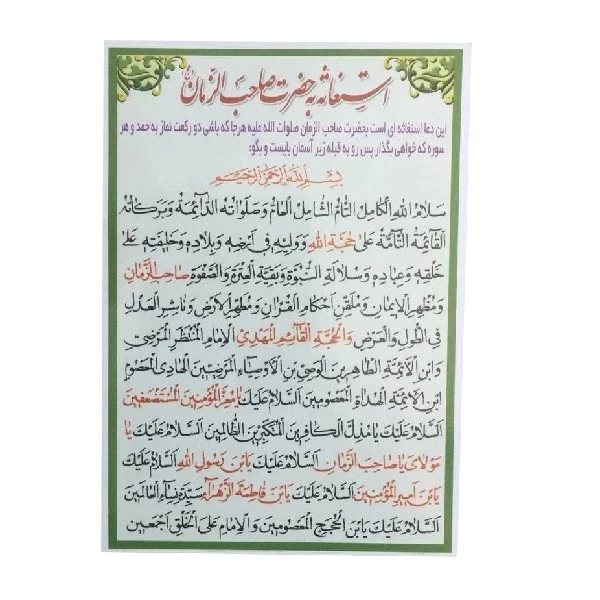 استغاثه به حضرت صاحب الزّمان
این دعا استغاثه ای است بحضرت صاحب الزمان صلوات الله علیه هرجا که باشی دو رکعت نماز به حمد و هر
سوره که خواهی بگذار پس رو به قبله زیر آسمان بایست و بگو:
بِسْمِ اللهِ الرَّحْمنِ الرَّحیمِ
سَلامُ اللهِ الْكامِلُ التّامُّ الشّامِلُ الْعامُّ وَصَلَواتُهُ الدّآئِمَةُ وَبَرَكاتُهُ
الْقآئِمَةُ التّآمَّةُ عَلى حُجَّةِ اللهِ وَوَلِيِّهِ فى اَرْضِهِ وَبِلادِهِ وَخَليفَتِهِ عَلى
خَلْقِهِ وَعِبادِهِ وَسُلالَةِ النُّبُوَّةِ وَبَقِيَّةِ الْعِتْرَةِ وَالصَّفْوَةِ صاحِبِ الزَّمانِ
وَمُظْهِرِ الْايمانِ وَمُلَقِّنِ اَحْكامِ الْقُرْانِ وَمُطَهِّرِ الْاَرْضِ وَناشِرِ الْعَدْلِ
فِى الطُّولِ وَالْعَرْضِ وَالْحُجَّةِ الْقآئِمِ الْمَهْدِىِّ الْاِمامِ الْمُنْتَظَرِ الْمَرْضِىِّ
وَابْنِ الْاَئِمَّةِ الطّاهِرينَ الْوَصِىِّ بْنِ الْاَوْصِيآءِ الْمَرْضِيّينَ الْهادِى الْمَعْصُومِ
ابْنِ الْاَئِمَّةِ الْهُداةِ الْمَعْصُومينَ اَلسَّلامُ عَلَيْكَ يا مُعِزَّ الْمُؤْمِنينَ الْمُسْتَضْعَفينَ
اَلسَّلامُ عَلَيْكَ يا مُذِلَّ الْكافِرينَ الْمُتَكَبِّرينَ الظّالِمينَ اَلسَّلامُ عَلَيْكَ يا
مَوْلاىَ يا صاحِبَ الزَّمانِ اَلسَّلامُ عَلَيْكَ يَابْنَ رَسُولِ اللهِ اَلسَّلامُ عَلَيْكَ
يَابْنَ اَميرِ الْمُؤْمِنينَ اَلسَّلامُ عَلَيْكَ يَابْنَ فاطِمَةَ الزَّهْرآءِ سَيِّدَةِ نِسآءِ الْعالَمينَ
اَلسَّلامُ عَلَيْكَ يَابْنَ الْحُجَجِ الْمَعْصُومينَ وَالْاِمامِ عَلَى الْخَلْقِ اَجْمَعينَ